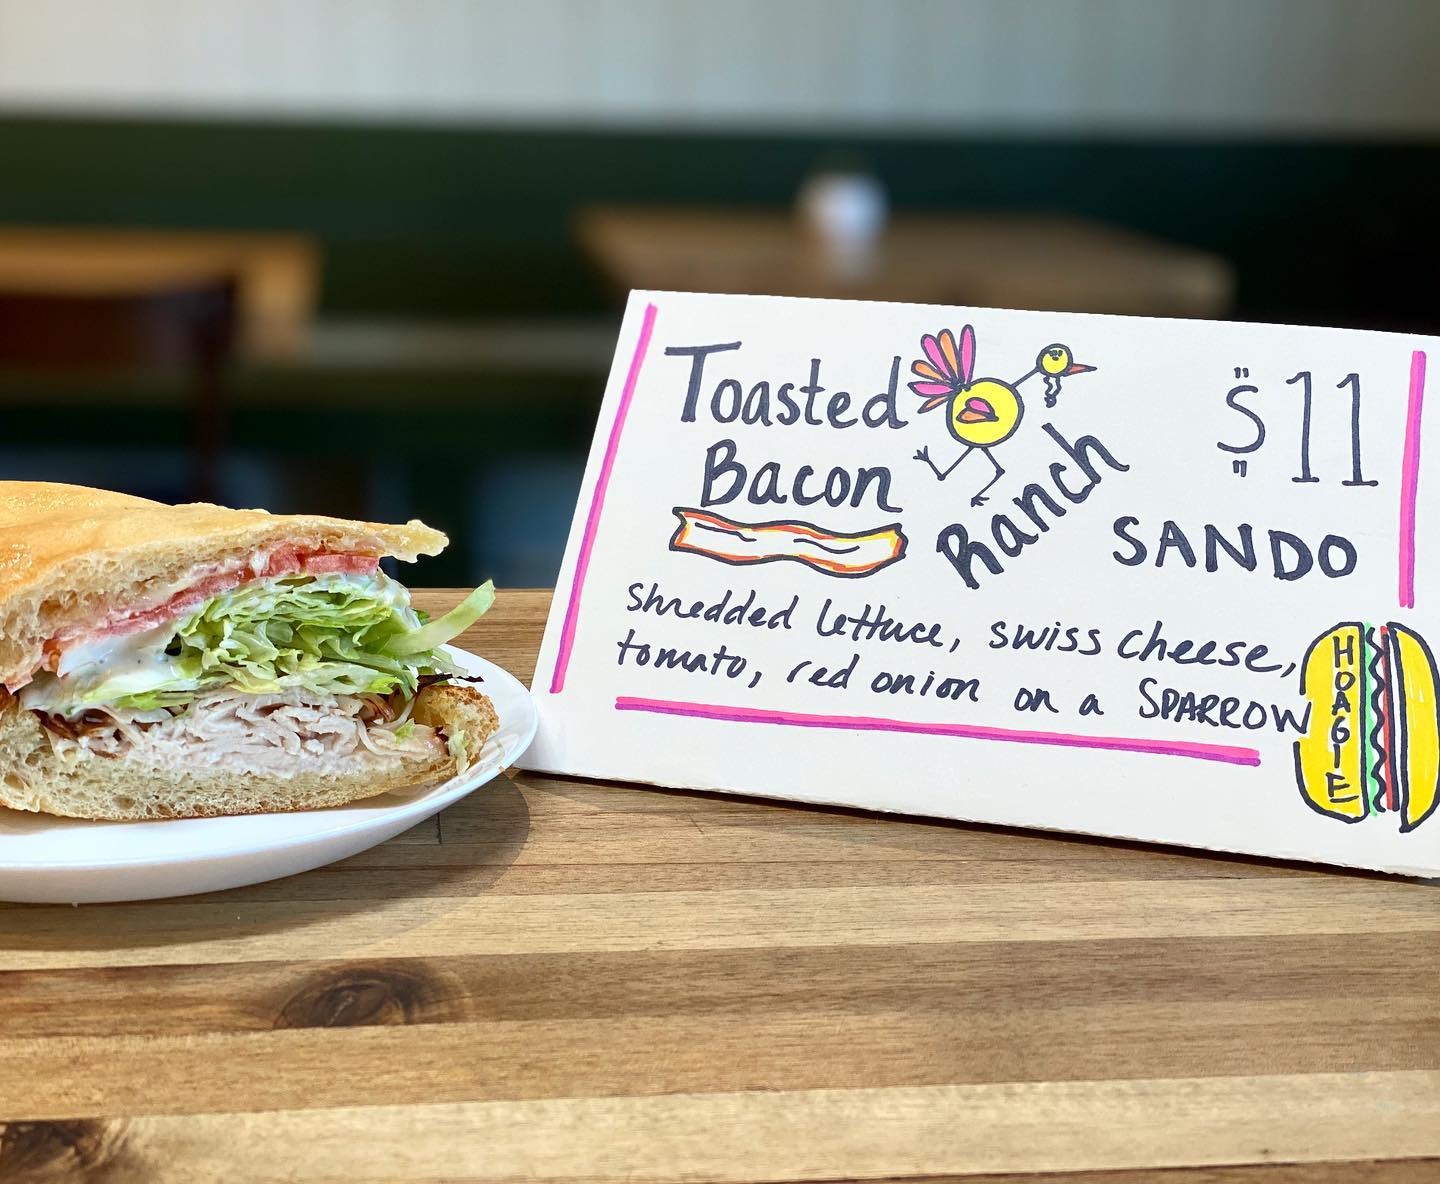 Toasted
Bacon
Ranch
$11
SANDO
shredded lettuce, swiss cheese,
tomato, red onion on a SPARROW
HOAGIE